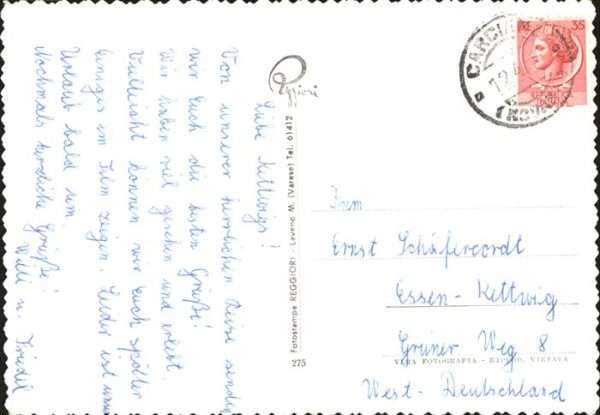 Liebe Kettwigs!
Von unserer herrlichen Reise senden
wir Euch die besten Grüße!
Wir haben viel gesehen und erlebt.
Vielleicht können wir Euch später
einiges im Film zeigen. Leider ist unser
Urlaub bald um.
Nochmals herzliche Grüße!
Willi u. Friedel
Reggiori
Fotostampa REGGIORI - Laveno M. (Varese) Tel. 61412
275
35
Fam
Ernst Schäfercordt
Essen-Kettwig
Grüner Weg 8
VERA FOTOGRAFIA - RIPROD. VIETATA
West-Deutschland